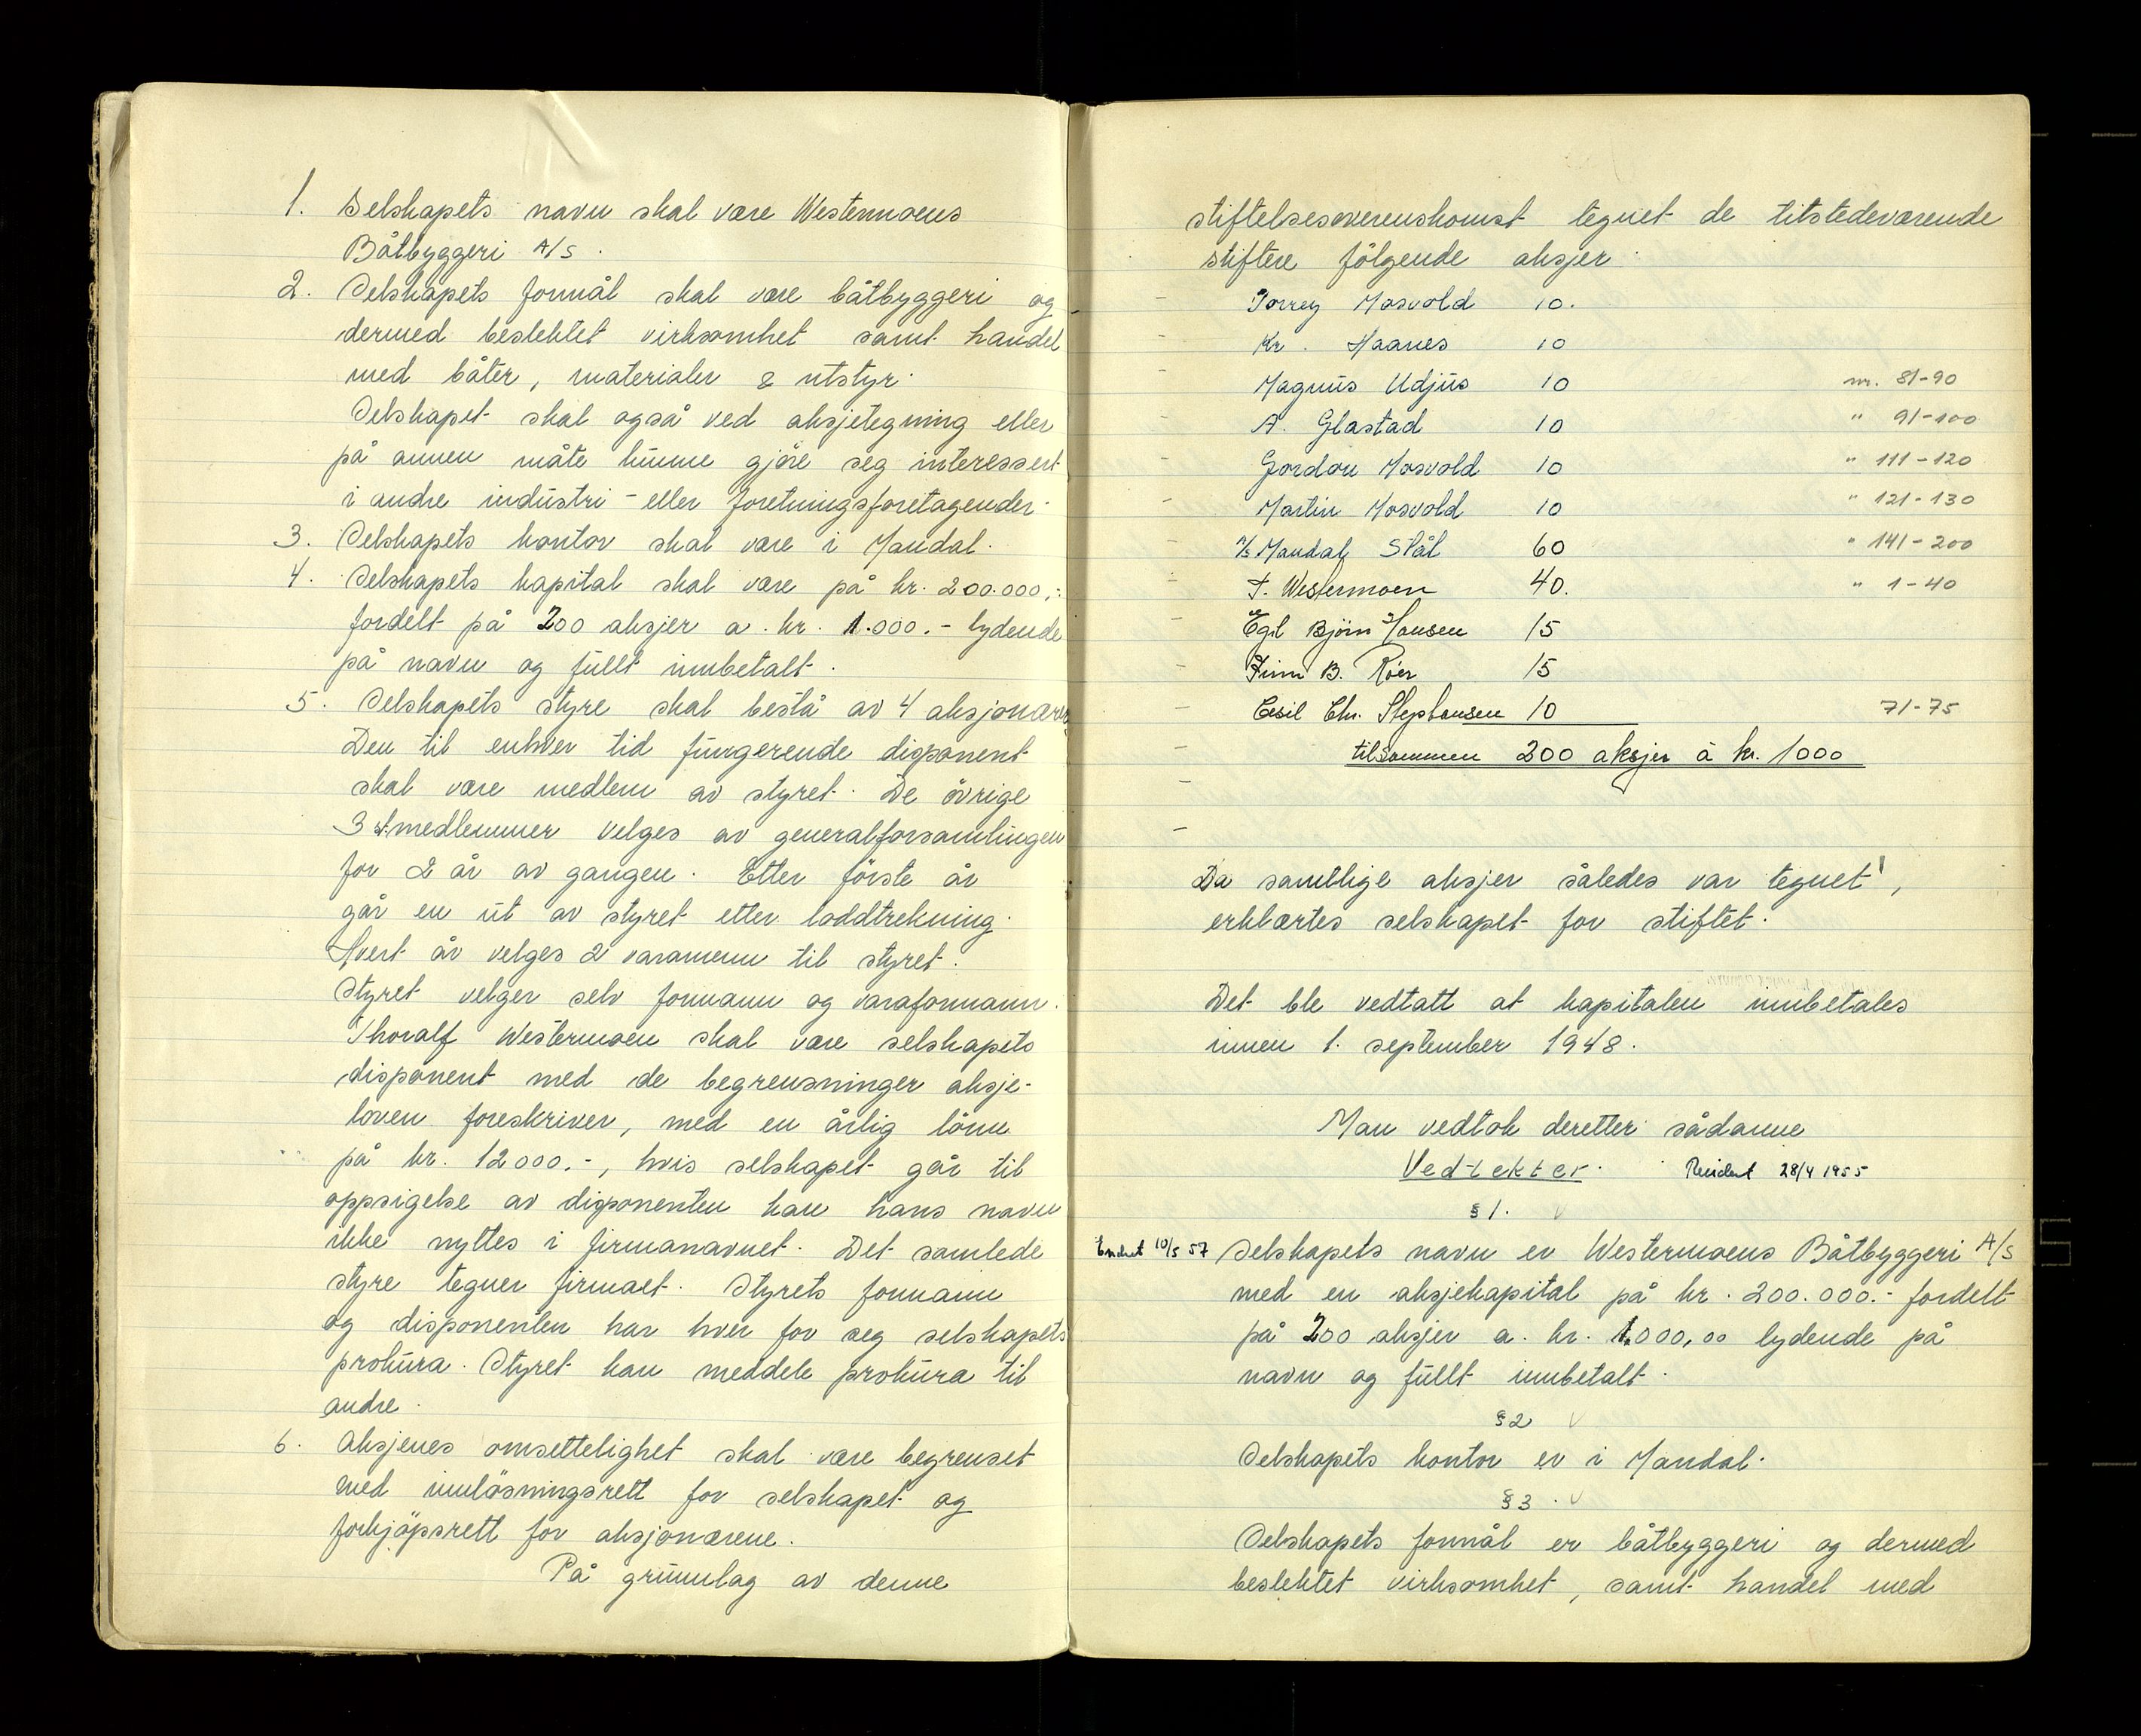 1. Selskapets navn skal være Westermoens
Båtbyggeri A/S.
2. Selskapets formål skal være båtbyggeri og
dermed beslektet virksomhet samt handel
med båter, materialer & utstyr.
Selskapet skal også ved aksjetegning eller
på annen måte kunne gjöre seg interessert
i andre industri- eller foretningsforetagender.
3. Selskapets kontor skal være i Mandal.
4. Selskapets kapital skal være på kr. 200.000,-
fordelt på 200 aksjer a. kr. 1.000.- lydende
på navn og fullt innbetalt.
5. Selskapets styre skal bestå av 4 aksjonærer
Den til enhver tid fungerende disponent
skal være medlem av styret. De övrige
3 st.medlemmer velges av generalforsamlingen
for 2 år av gangen. Etter förste år
går en ut av styret etter loddtrekning.
Hvert år velges 2 varamenn til styret.
Styret velger selv formann og varaformann.
Thoralf Westermoen skal være selskapets
disponent med de begrensninger aksje-
loven foreskriver, med en årlig lönn
på kr. 12000.-, hvis selskapet går til
oppsigelse av disponenten kan hans navn
ikke nyttes i firmanavnet. Det samlede
styre tegner firmaet. Styrets formann
og disponenten har hver for seg selskapets
prokura. Styret kan meddele prokura til
andre.
6. Aksjenes omsettelighet skal være begrenset
med innlösningsrett for selskapet og
forkjöpsrett for aksjonærene.
På grunnlag av denne
stiftelsesoverenskomst tegnet de tilstedeværende
stiftere fölgende aksjer
Torrey Mosvold 10.
Kr. Haanes 10
Magnus Udjus 10 nr. 81-90
A. Glastad 10 " 91-100
Gordon Mosvold 10 " 111-120
Martin Mosvold 10 " 121-130
A/S Mandals Stål 60 " 141-200
T. Westermoen 40. " 1-40
Egil Björn Hansen 15
Finn B. Röer 15
Cesil Chr. Stephansen 10 71-75
tilsammen 200 aksjer à kr. 1000
Da samtlige aksjer således var tegnet,
erklærtes selskapet for stiftet.
Det ble vedtatt at kapitalen innbetales
innen 1. september 1948.
Man vedtok deretter sådanne
Vedtekter. Revidert 28/4 1955
§ 1.
Endret 10/5 57 Selskapets navn er Westermoens Båtbyggeri A/S
med en aksjekapital på kr. 200.000.- fordelt
på 200 aksjer a. kr. 1.000,00 lydende på
navn og fullt innbetalt.
§ 2
Selskapets kontor er i Mandal.
§ 3.
Selskapets formål er båtbyggeri og dermed
beslektet virksomhet, samt handel med